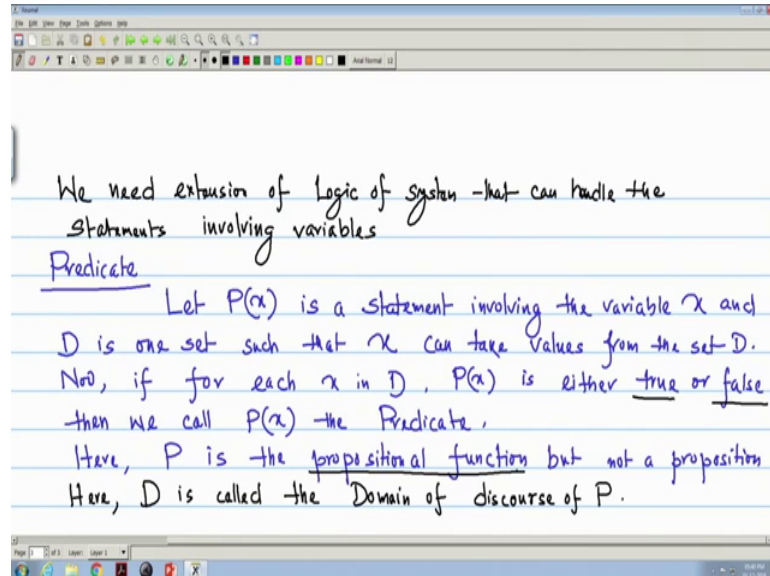 Journal
File Edit View Page Tools Options Help
Arial Normal 12
We need extension of Logic of system that can handle the
Statements involving variables
Predicate
Let P(x) is a statement involving the variable x and
D is one set such that x can take values from the set D.
Now, if for each x in D, P(x) is either true or false
then we call P(x) the Predicate.
Here, P is the propositional function but not a proposition
Here, D is called the Domain of discourse of P.
Page 3 of 3 Layer: Layer 1